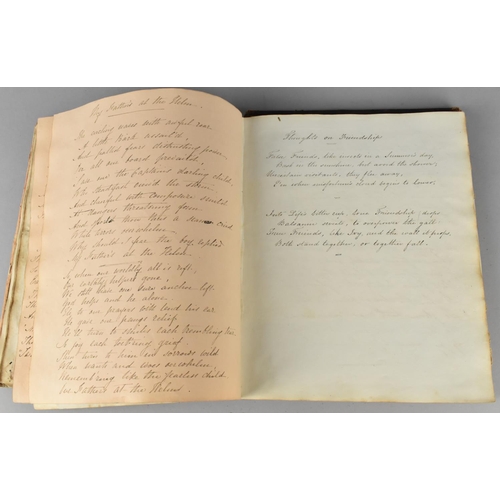 My Father's at the Helm
The
with awful roar
A little bark assail'd,
And pallid fear's distracting power
O'er all on board prevail'd,
Save one the Captain's darling child,
Who
view'd the storm
And cheerful with composure smiled
At
threatening form
And
thou
a seaman cried
While
overwhelm
Why should I fear the boy replied
My Father's at the Helm.
when our worldly all is reft,
Our earthly helpers gone,
We still have one sure anchor left
God helps and he alone.
He to our prayers will lend his ear
He gives our pangs relief
He'll
to smiles each trembling tear
To joy each torturing grief
Then turn to him
sorrows wild
When wants and woes o'erwhelm
Remembering like the fearless child
Our Father's at the Helm.
Thoughts on Friendship
False Friends, like insects in a Summer's day,
Bask in the sunshine but avoid the shower;
Uncertain
they flee away,
E'er when misfortune's cloud begins to lower,
Into life's bitter cup, true Friendship drops
Balsamic sweets, to overpower the gall
True Friends, like Ivy, and the wall it props,
Both stand together, or together fall.